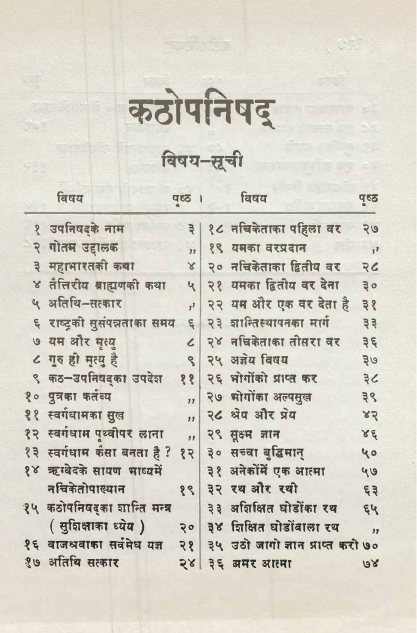 कठोपनिषद्
विषय-सूची
विषय पृष्ठ ।
१ उपनिषद्के नाम ३
२ गोतम उद्दालक ,,
३ महाभारतकी कथा ४
४ तैत्तिरीय ब्राह्मणकी कथा ५
५ अतिथि-सत्कार ,,
६ राष्ट्रकी सुसंपन्नताका समय ६
७ यम और मृत्यु ८
८ गुरु ही मृत्यु है ९
९ कठ-उपनिषद्का उपदेश ११
१० पुत्रका कर्तव्य ,,
११ स्वर्गधामका सुख ,,
१२ स्वर्गधाम पृथ्वीपर लाना ,,
१३ स्वर्गधाम कैसा बनता है ? १२
१४ ऋग्वेदके सायण भाष्यमें
नचिकेतोपाख्यान १९
१५ कठोपनिषद्का शान्ति मन्त्र
( सुशिक्षाका ध्येय ) २०
१६ वाजश्रवाका सर्वमेध यज्ञ २१
१७ अतिथि सत्कार २४
विषय पृष्ठ
१८ नचिकेताका पहिला वर २७
१९ यमका वरप्रदान ,,
२० नचिकेताका द्वितीय वर २८
२१ यमका द्वितीय वर देना ३०
२२ यम और एक वर देता है ३१
२३ शान्तिस्थापनका मार्ग ३३
२४ नचिकेताका तीसरा वर ३६
२५ अज्ञेय विषय ३७
२६ भोगोंको प्राप्त कर ३८
२७ भोगोंका अल्पसुख ३९
२८ श्रेय और प्रेय ४२
२९ सूक्ष्म ज्ञान ४६
३० सच्चा बुद्धिमान् ५०
३१ अनेकोंमें एक आत्मा ५७
३२ रथ और रथी ६३
३३ अशिक्षित घोडोंका रथ ६५
३४ शिक्षित घोडोंवाला रथ ,,
३५ उठो जागो ज्ञान प्राप्त करो ७०
३६ अमर आत्मा ७४